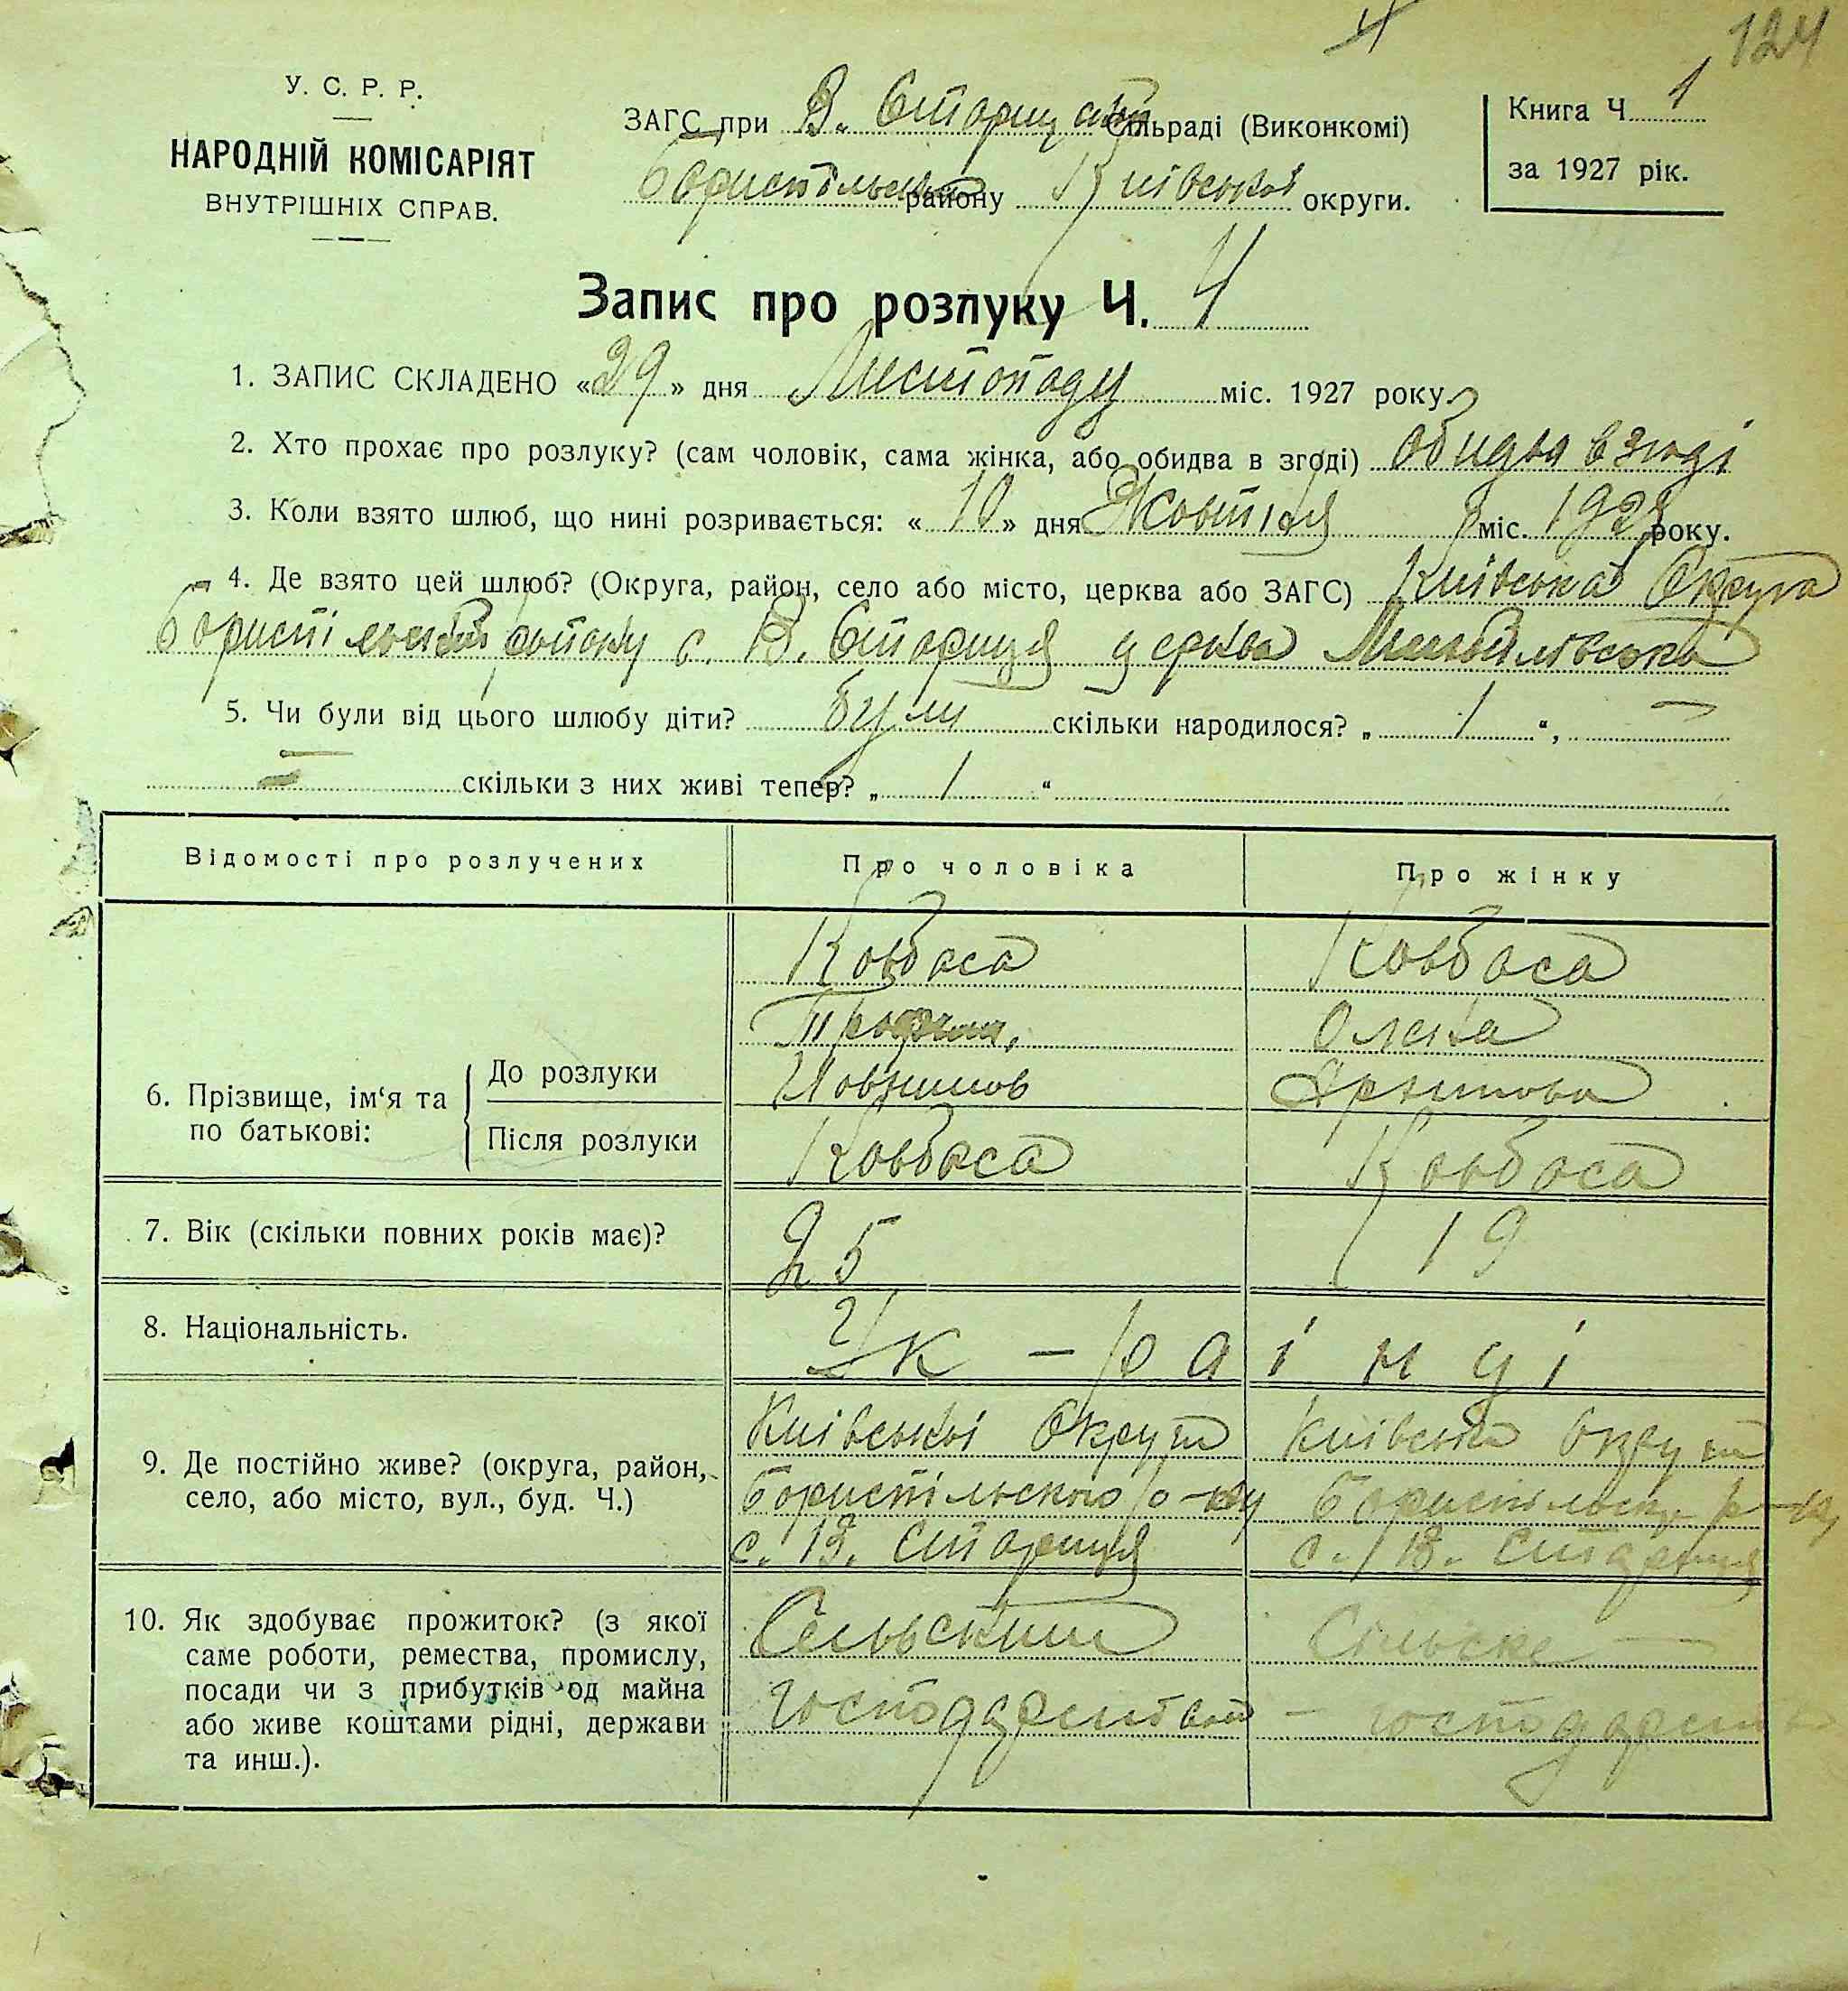 124
4
У. С. Р. Р.
НАРОДНІЙ КОМІСАРІЯТ
ВНУТРІШНІХ СПРАВ.
ЗАГС при В. Старицькій Сільраді (Виконкомі)
Бориспільськ району Київської округи.
Книга Ч. 1
за 1927 рік.
Запис про розлуку Ч. 4
1. ЗАПИС СКЛАДЕНО «29» дня Листопаду міс. 1927 року.
2. Хто прохає про розлуку? (сам чоловік, сама жінка, або обидва в згоді) обидва в згоді
3. Коли взято шлюб, що нині розривається: «10» дня Жовтня міс. року.
4. Де взято цей шлюб? (Округа, район, село або місто, церква або ЗАГС) Київська Округа
Бориспільський району с. В. Стариця церква Михайлівська
5. Чи були від цього шлюбу діти? були скільки народилося? „ 1 “, —
— скільки з них живі тепер? „ 1 “
Відомості про розлучених Про чоловіка Про жінку
6. Прізвище, ім‘я та по батькові:
До розлуки
Ковбаса
Ковбаса
Олена
Після розлуки
Ковбаса
Ковбаса
7. Вік (скільки повних років має)? 25 19
8. Національність. Ук – раінці
9. Де постійно живе? (округа, район,
село, або місто, вул., буд. Ч.)
Київські Округи
Бориспільського р-ну
с. В. Стариця
Київська Округи
Бориспільськ. р-ну
с. В. Стариця
10. Як здобуває прожиток? (з якої
саме роботи, ремества, промислу,
посади чи з прибутків од майна
або живе коштами рідні, держави
та инш.).
Сельським
господарством
Сільске —
— господарств